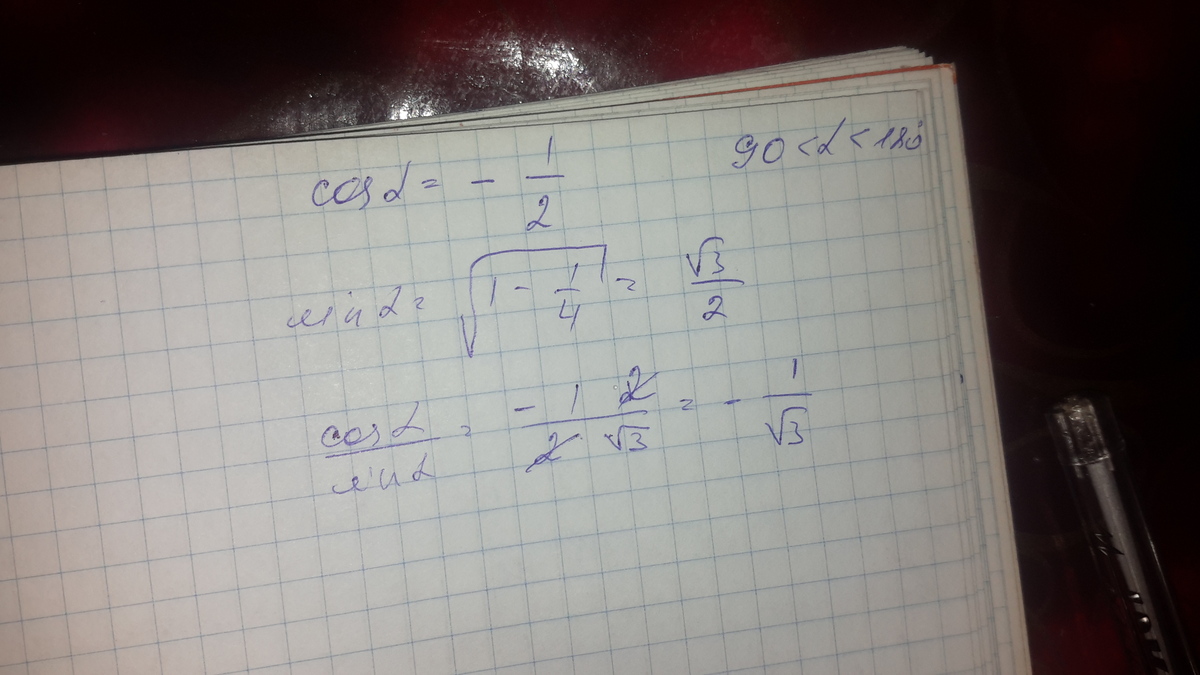 cos α = - 1/2 90 < α < 180°
sin α = √(1 - 1/4) = √3/2
cos α / sin α = - 1 2 / 2 √3 = - 1/√3